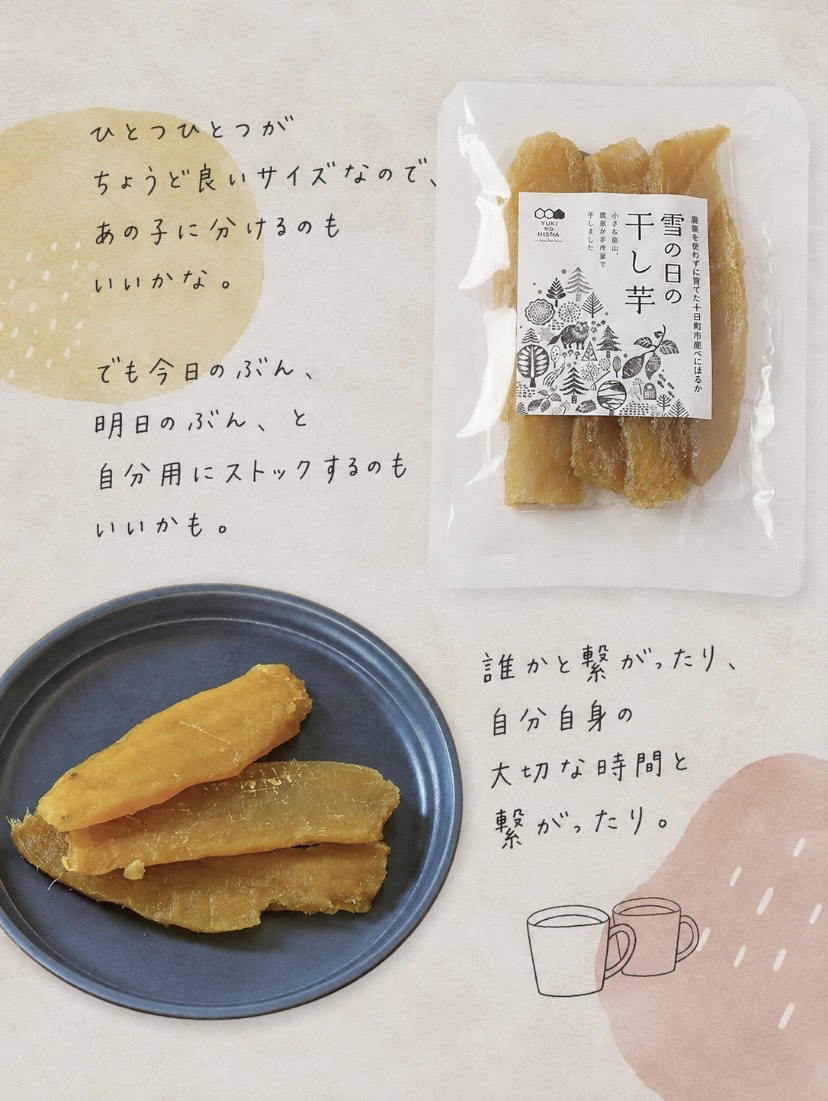 ひとつひとつが
ちょうど良いサイズなので、
あの子に分けるのも
いいかな。
でも今日のぶん、
明日のぶん、と
自分用にストックするのも
いいかも。
農薬を使わずに育てた十日町市産べにはるか
雪の日の
干し芋
小さな里山、
農家が手作業で
干しました
YUKI
NO
HISHIA
誰かと繋がったり、
自分自身の
大切な時間と
繋がったり。